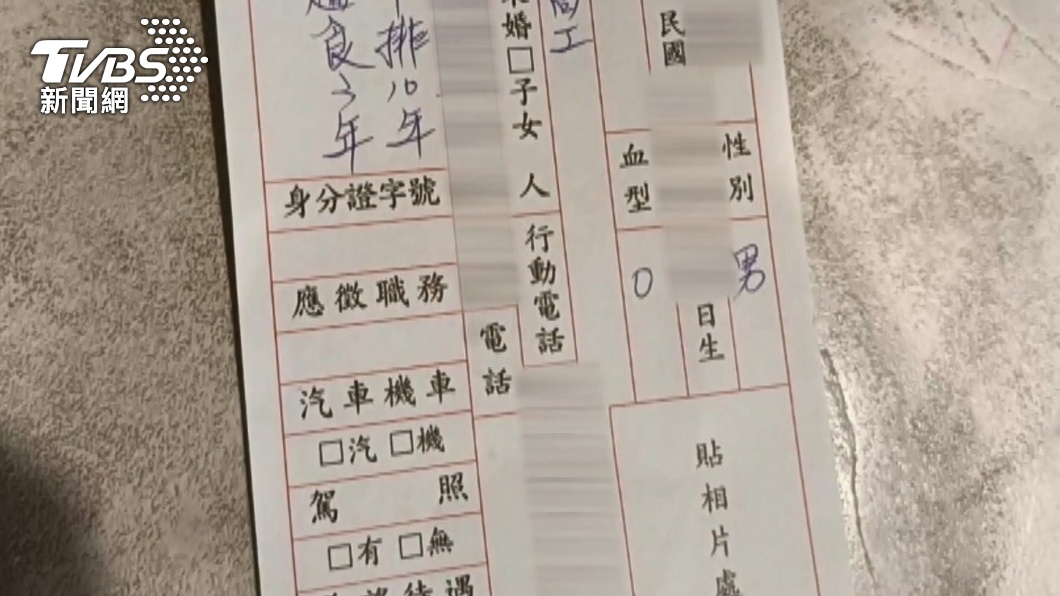 TVBS
新聞網
民國
性別
男
日生
血型
O
貼相片處
工
婚□子女 人
行動電話
電話
排10年
良3年
身分證字號
應徵職務
汽車機車
□汽□機
駕照
□有□無
待遇